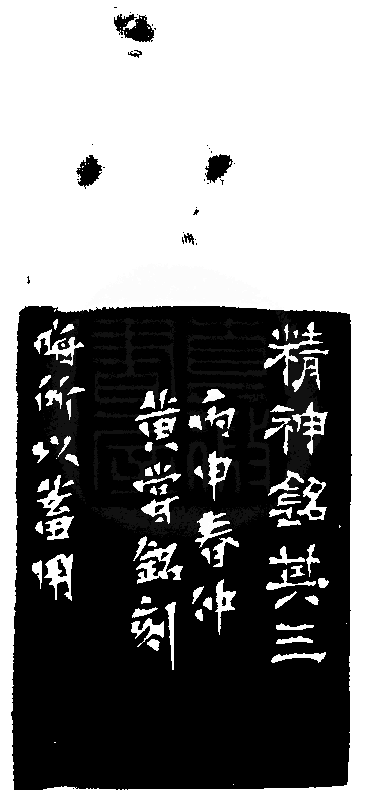 精神銘其三
丙申春仲
黃嘗銘刻
晦所以蓄用